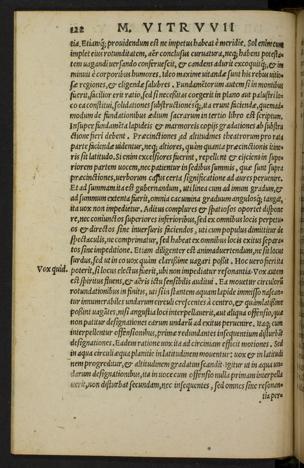 122 M. VITRVVII
tia. Etiamq; prouidendum est ne impetus habeat è meridie. Sol enim cum
implet eius rotunditatem, aër conclusus curuatura, neq; habens potesta-
tem uagandi uersando conferuescit, & candens adurit excoquitq;, & im
minuit è corporibus humores, ideo maxime uitandæ sunt his rebus uitio-
sæ regiones, & eligendæ salubres. Fundamentorum autem si in montibus
fuerit, facilior erit ratio, sed si necessitas coegerit in plano aut palustri lo-
co ea constitui, solidationes substructionesq;, ita erunt faciendæ, quemad-
modum de fundationibus ædium sacrarum in tertio libro est scriptum.
Insuper fundamēta lapideis & marmoreis copijs gradationes ab substru
ctione fieri debent. Præcinctiones ad altitudines theatrorum pro rata
parte faciendæ uidentur, neq; altiores, quàm quanta præcinctionis itine-
ris sit latitudo. Si enim excelsiores fuerint, repellent & eijcient in supe-
riorem partem uocem, nec patientur in sedibus summis, quæ sunt supra
præcinctiones, uerborum casus certa significatione ad aures peruenire.
Et ad summam ita est gubernandum, uti linea cum ad imum gradum, &
ad summum extenta fuerit, omnia cacumina graduum angulosq; tangat,
ita uox non impedietur. Aditus complures & spatiosos oportet dispone
re, nec coniunctos superiores inferioribus, sed ex omnibus locis perpetu-
os & directos sine inuersuris faciendos, uti cum populus dimittitur de
spectaculis, ne comprimatur, sed habeat ex omnibus locis exitus separa-
tos sine impeditione. Etiam diligenter est animaduertendum, ne sit locus
surdus, sed ut in eo uox quàm clarissime uagari possit. Hoc uero fieri ita
Vox quid. poterit, si locus electus fuerit, ubi non impediatur resonantia. Vox autem
est spiritus fluens, & aëris ictu sensibilis auditui. Ea mouetur circulorū
rotundationibus infinitis, uti si in stantem aquam lapide immisso nascan-
tur innumerabiles undarum circuli crescentes à centro, & quàm latissime
possint uagātes, nisi angustia loci interpellauerit, aut aliqua offensio, quæ
non patitur designationes earum undarū ad exitus peruenire. Itaq; cum
interpellentur offensionibus, primæ redundantes insequentium disturbāt
designationes. Eadem ratione uox ita ad circinum efficit motiones. Sed
in aqua circuli æqua planitie in latitudinem mouentur: uox & in latitudi
nem progreditur, & altitudinem gradatim scandit. Igitur ut in aqua un-
darum designationibus, ita in uoce cum offensio nulla primam interpella
uerit, non disturbat secundam, nec insequentes, sed omnes sine resonan-
tia per-